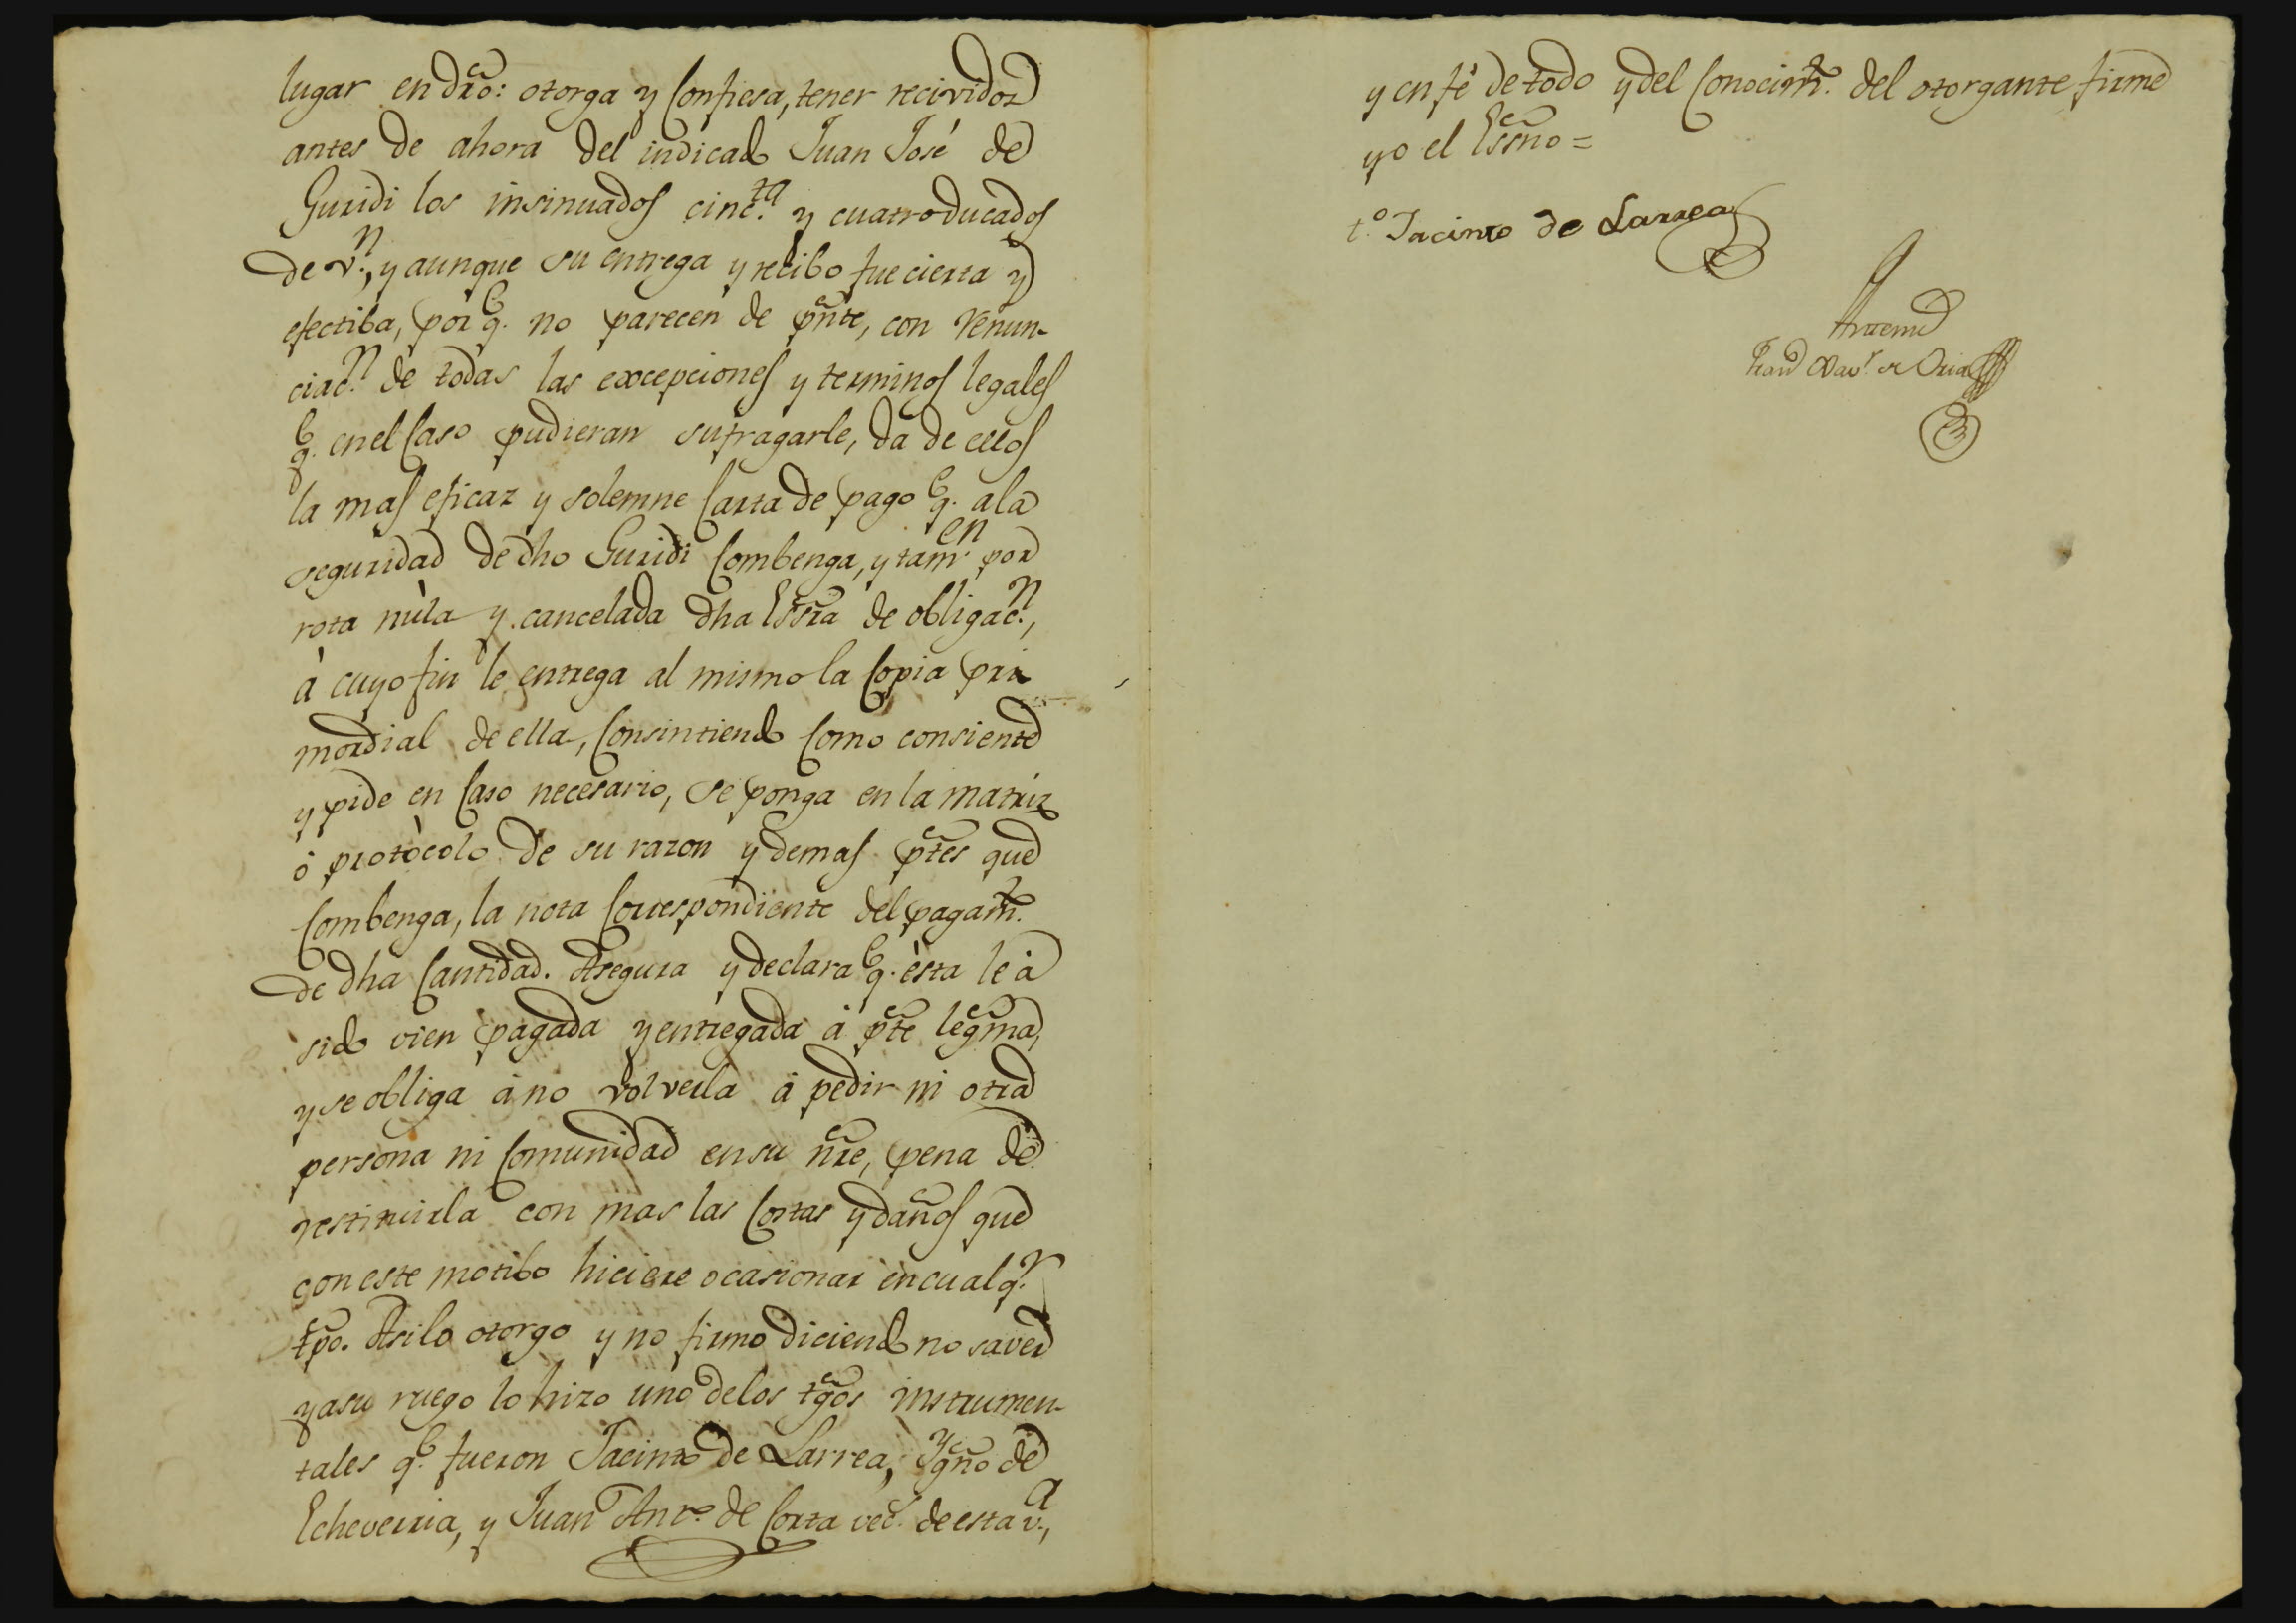 lugar en dro: otorga y Confiesa, tener recividos
antes de ahora del indicado Juan José de
Guridi los insinuados cinc.ta y cuatro ducados
de v.n, y aunque su entrega y recibo fue cierta y
efectiba, por q.e no parecen de pnte, con renun-
ciac.n de todas las excepciones y terminos legales
q.e en el Caso pudieran sufragarle, da de ellos
la mas eficaz y solemne Carta de pago q.e a la
seguridad de dho Guridi Combenga, y tam.en por
rota nùla y cancelada dha Essra de obligac.n,
à cuyo fin le entrega al mismo la Copia pri
mordial de ella, Consintiendo Como consiente
y pide en Caso necesario, se ponga en la matriz
ò protòcolo de su razon y demas ptes que
Combenga, la nota Correspondiente del pagam.to
de dha Cantidad. Asegura y declara q.e èsta le à
sido vien pagada y entregada à pte legma,
y se obliga à no volverla à pedir ni otra
persona ni Comunidad en su nre, pena de
restituirla con mas las Costas y daños que
con este motibo hiciere ocasionar en cualq.r
tpo. Asi lo otorgo y no firmo diciendo no saver
y a su ruego lo hizo uno de los tgos instrumen-
tales q.e fueron Jacinto de Larrea, Ygno de
Echeverria, y Juan Ant.o de Corta vec.s de esta v.a,
y en fé de todo y del Conocim.to del otorgante firme
yo el Essno =
t.o Jacinto de Larrea
Antemi
Fran.co Xav.r de Oria